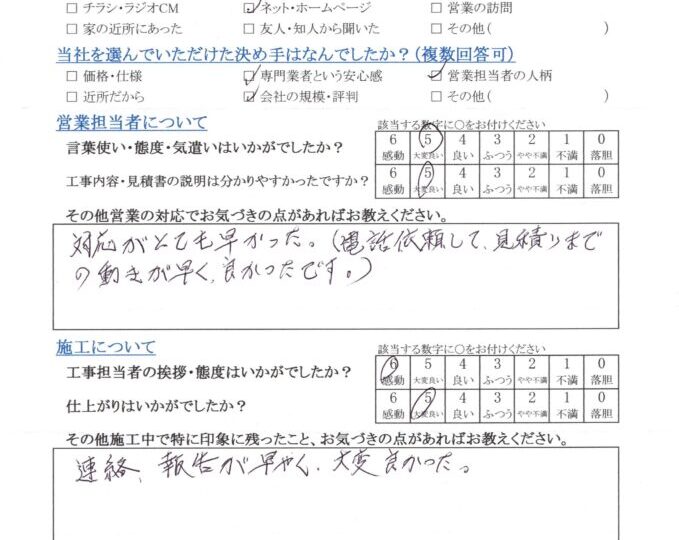 □ チラシ・ラジオCM ☑ ネット・ホームページ □ 営業の訪問
□ 家の近所にあった □ 友人・知人から聞いた □ その他( )
当社を選んでいただけた決め手はなんでしたか?(複数回答可)
□ 価格・仕様 ☑ 専門業者という安心感 ☑ 営業担当者の人柄
□ 近所だから ☑ 会社の規模・評判 □ その他( )
営業担当者について 該当する数字に○をお付けください
言葉使い・態度・気遣いはいかがでしたか? 6 5 4 3 2 1 0
感動 大変良い 良い ふつう やや不満 不満 落胆
工事内容・見積書の説明は分かりやすかったですか? 6 5 4 3 2 1 0
感動 大変良い 良い ふつう やや不満 不満 落胆
その他営業の対応でお気づきの点があればお教えください。
対応がとても早かった。(電話依頼して、見積りまで
の動きが早く、良かったです。)
施工について 該当する数字に○をお付けください
工事担当者の挨拶・態度はいかがでしたか? 6 5 4 3 2 1 0
感動 大変良い 良い ふつう やや不満 不満 落胆
仕上がりはいかがでしたか? 6 5 4 3 2 1 0
感動 大変良い 良い ふつう やや不満 不満 落胆
その他施工中で特に印象に残ったこと、お気づきの点があればお教えください。
連絡、報告が早やく、大変良かった。